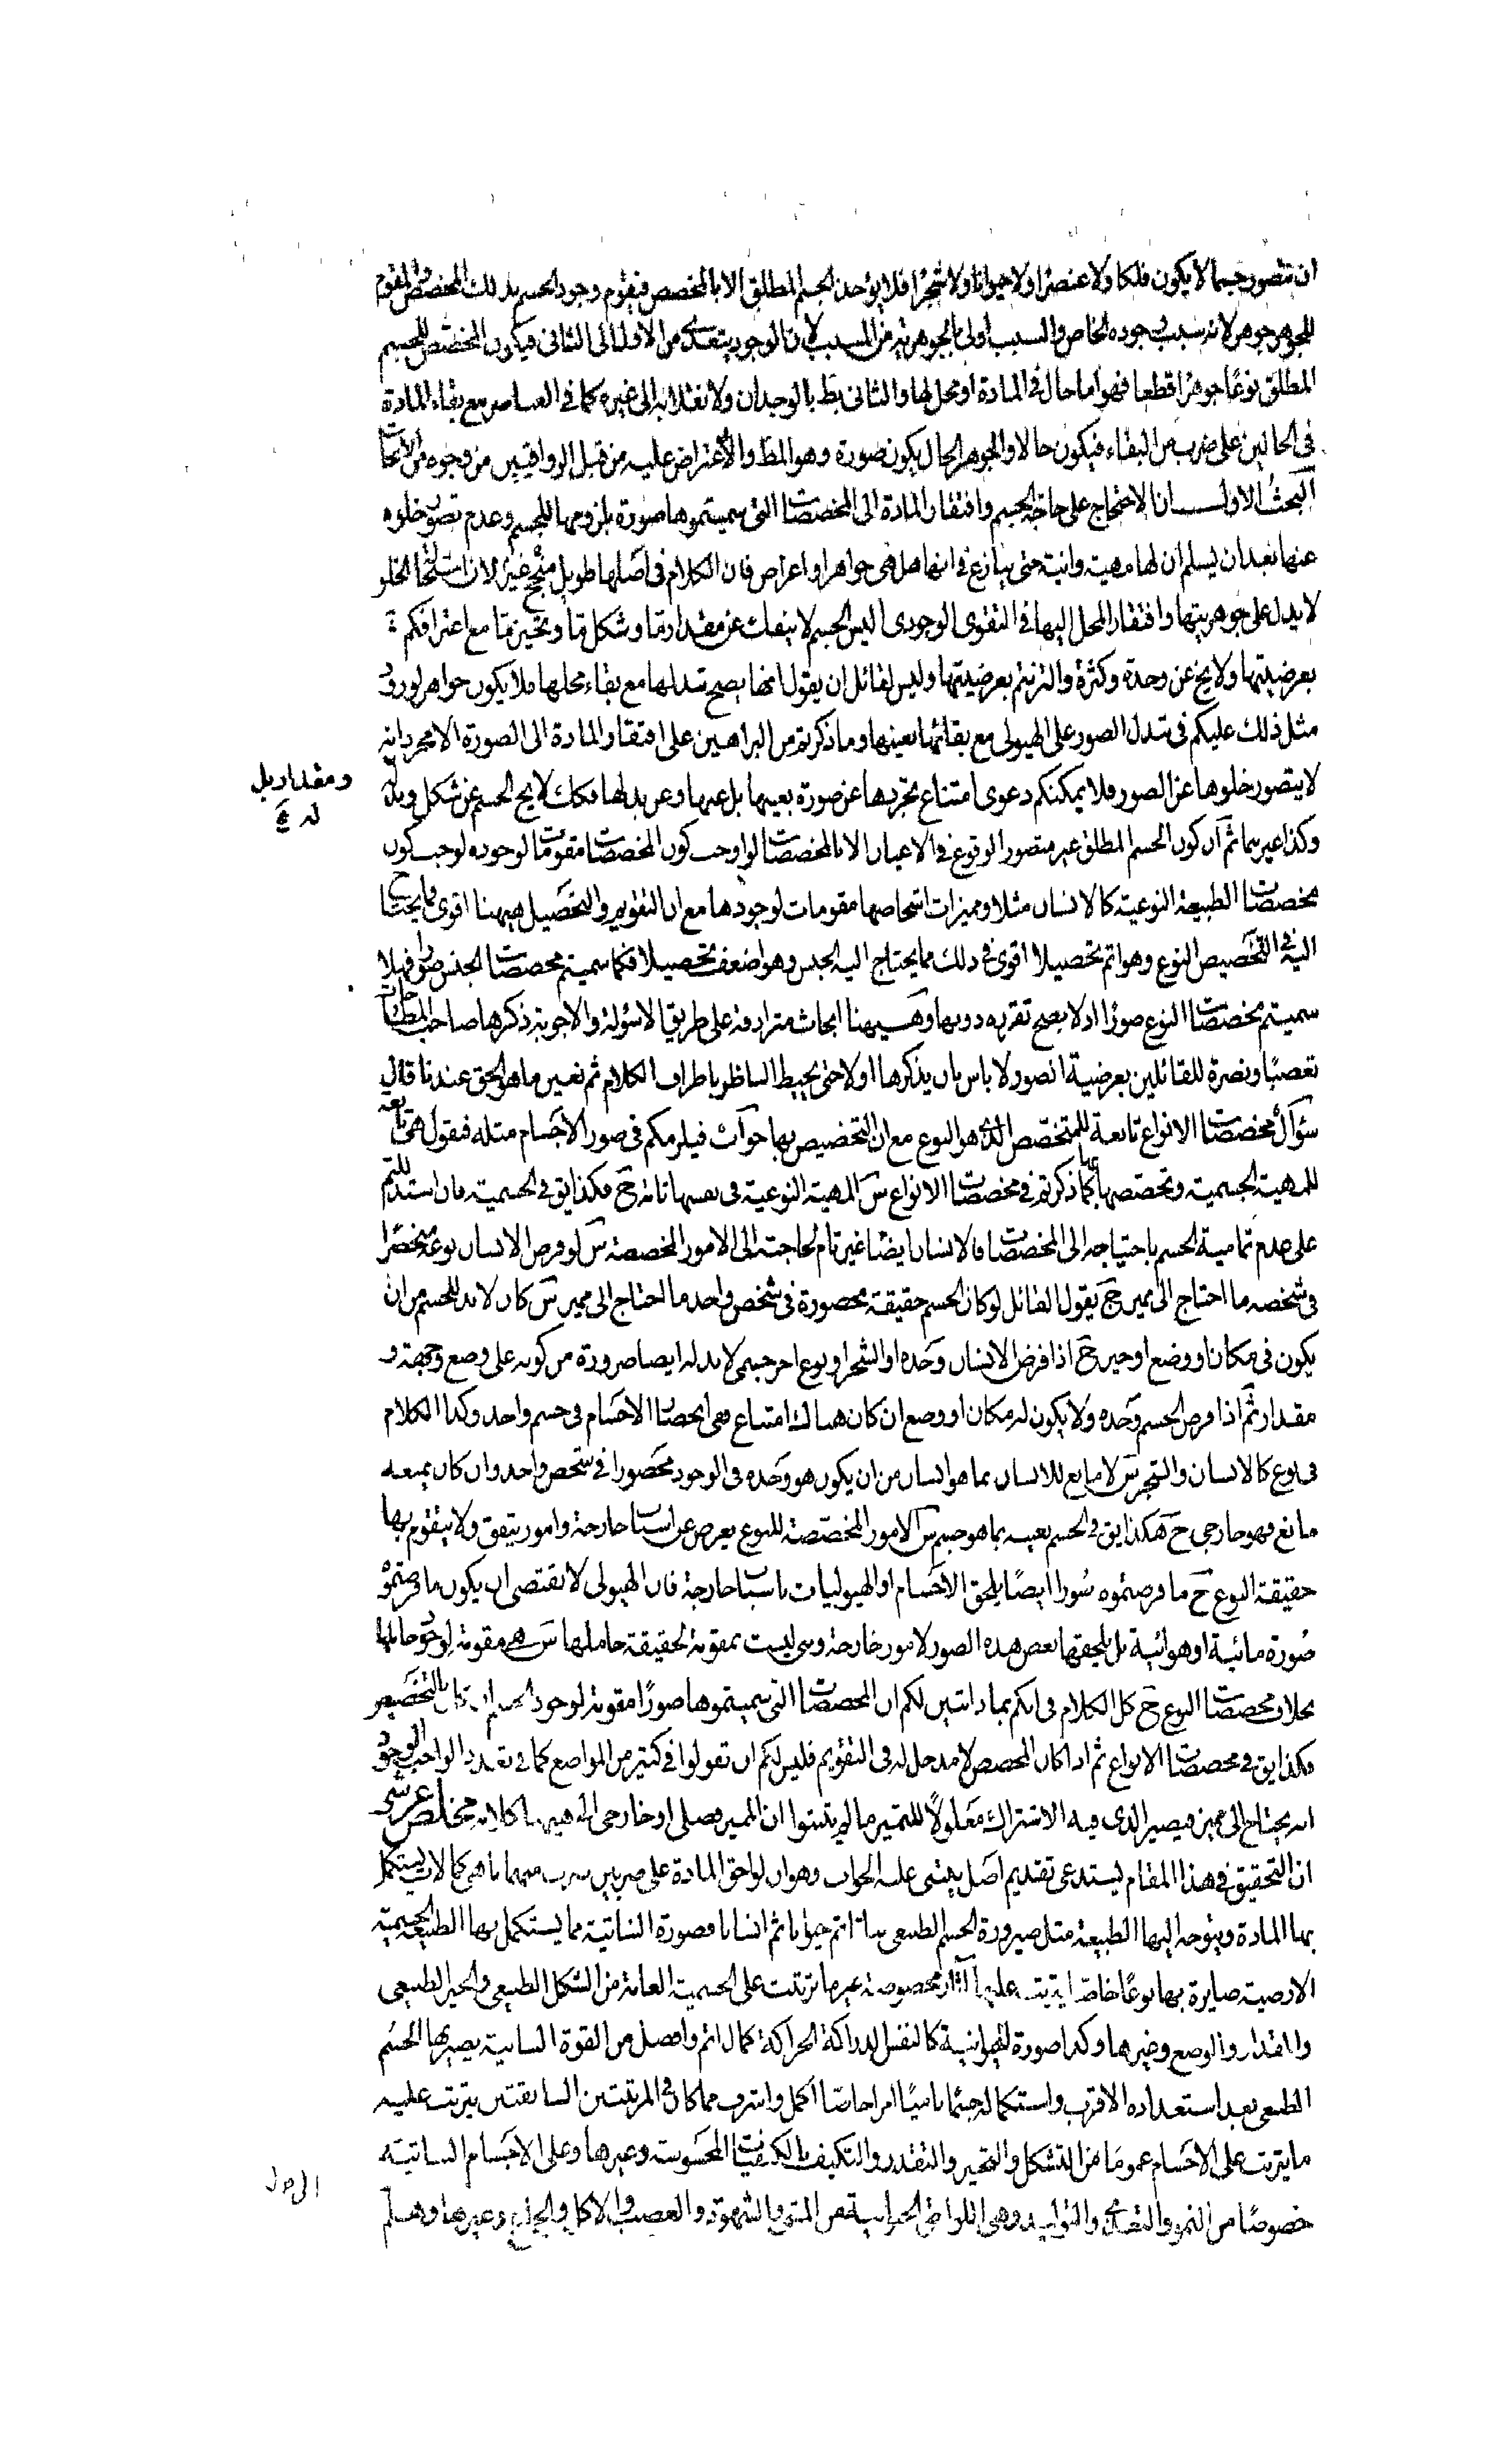 ان نتصور جسما لا يكون فلكا ولا عنصرا ولا حيوانا ولا شجرا فلا يوجد الجسم المطلق الا بالمخصص فيقوم وجود الجسم بذلك المخصص والمقوم
للجوهر جوهر لانه سبب وجوده الخاص والسبب اولى بالجوهرية من المسبب لان الوجود يتعدى من الاول الى الثانى فيكون المخصص للجسم
المطلق نوعا جوهرا قطعا فهو اما حال فى المادة او محل لها والثانى بط بالوجدان ولانقلابه الى غيره كما فى العناصر مع بقاء المادة
فى الحالين على ضرب من البقاء فيكون حالا والجوهر الحال يكون صورة وهو المط والاعتراض عليه من قبل الرواقيين من وجوه من الابحاث
البحث الاول ان الاحتجاج على حاجة الجسم وافتقار المادة الى المخصصات التى سميتموها صورة بلزومها للجسم وعدم تصور خلوه
عنها بعد ان يسلم ان لها مهية وانية حتى ينازع فى انها هل هى جواهر او اعراض فان الكلام فى اصلها طويل منجح غير لان استحالة الخلو
لا يدل على جوهريتها وافتقار المحل اليها فى التقوى الوجودى اليس الجسم لا ينفك عن مقدار ما وشكل ما وتحيز ما مع اعترافكم
بعرضيتها ولا يخ عن وحدة وكثرة والتزمتم بعرضيتها وليس لقائل ان يقول انها يصح تبدلها مع بقاء محلها فلا يكون جواهر لورود
مثل ذلك عليكم فى تبدل الصور على الهيولى مع بقائها بعينها وما ذكرتم من البراهين على افتقار المادة الى الصورة الا مجرد انه
لا يتصور خلوها عن الصور فلا يمكنكم دعوى امتناع تجردها عن صورة بعينها بل عنها وعن بدلها فكك لا يخ الجسم عن شكل وبدله
ومقدار وبدله
وكذا غيرهما ثم ان كون الجسم المطلق غير متصور الوقوع فى الاعيان الا بالمخصصات لو اوجب كون المخصصات مقومات لوجوده لوجب كون
مخصصات الطبيعة النوعية كالانسان مثلا ومميزات اشخاصها مقومات لوجودها مع ان التقويم والتحصيل هيهنا اقوى فما يحتاج
اليه فى التخصيص النوع وهو اتم تحصيلا اقوى فى ذلك مما يحتاج اليه الجنس وهو اضعف تحصيلا فكما سميتم مخصصات الجنس صورا فهلا
سميتم مخصصات النوع صورا اذ لا يصح تقرره دونها وهيهنا ابحاث مترادفة على طريق الاسؤلة والاجوبة ذكرها صاحب المطارحات
تعصبا ونصرة للقائلين بعرضية الصور ولا باس بان يذكرها اولا حتى يحيط الناظر باطراف الكلام ثم نعين ما هو الحق عندنا قال
سؤال مخصصات الانواع تابعة للمتخصص الذى هو النوع مع ان التخصيص بها جواب فيلزمكم فى صور الاجسام مثله فنقول هى تابعة
للمهية الجسمية وتخصصها بها كما ذكرتم فى مخصصات الانواع س المهية النوعية فى نفسها تامة ج فكذا يق فى الجسمية فان استدللتم
على عدم تمامية الجسم باحتياجه الى المخصصات فالانسان ايضا غير تام لحاجته الى الامور المخصصة س لو فرض الانسان نوعه منحصرا
فى شخصه ما احتاج الى مميز ج يقول القائل لو كان الجسم حقيقة محصورة فى شخص واحد ما احتاج الى مميز س كان لابد للجسم من ان
يكون فى مكان او وضع او حيز ج اذا فرض الانسان وحده او الشجر او نوع اخر جسمى لابد له ايضا ضرورة من كونه على وضع وجهة و
مقدار ثم اذا فرض الجسم وحده ولا يكون له مكان او وضع ان كان هناك امتناع فهى انحصار الاجسام فى جسم واحد وكذا الكلام
فى نوع كالانسان والشجر س لا مانع للانسان بما هو انسان من ان يكون هو وحده فى الوجود محصورا فى شخص واحد وان كان يمنعه
مانع فهو خارجى ج هكذا يق فى الجسم بعينه بما هو جسم س الامور المخصصة للنوع يعرض عن اسباب خارجة وامور يتفق ولا يتقوم بها
حقيقة النوع ج ما فرضتموه صورا ايضا يلحق الاجسام او الهيوليات باسباب خارجة فان الهيولى لا تقتضى ان يكون ما فرضتموه
صورة مائية او هوائية بل يلحقها بعض هذه الصور لامور خارجة وهى ليست بمقومة لحقيقة حاملها س هى مقومة لوجود حاملها
بخلاف مخصصات النوع ج كل الكلام فى انكم بماذا تبين لكم ان المخصصات التى سميتموها صورا مقومة لوجود الجسم ان كان بالتخصيص
فكذا يق فى مخصصات الانواع ثم اذا كان المخصص لا مدخل له فى التقويم فليس لكم ان تقولوا فى كثير من المواضع كما فى تعدد الواجب الوجود
انه يحتاج الى مميز فيصير الذى فيه الاشتراك معلولا للتميز ما لم يثبتوا ان المميز فصلى او خارجى الى هيهنا كلامه مخلص عرشى
ان التحقيق فى هذا المقام يستدعى تقديم اصل يبتنى عليه الجواب وهو ان لواحق المادة على ضربين ضرب منهما ما هى كمالات يستكمل
بها المادة ويتوجه اليها الطبيعة مثل صيرورة الجسم الطبيعى نباتا ثم حيوانا ثم انسانا فصورة النباتية مما يستكمل بها الطبيعة الجسمية
الارضية صايرة بها نوعا خاصا يترتب عليها آثار مخصوصة غير ما ترتبت على الجسمية العامة من الشكل الطبيعى والحيز الطبيعى
والمقدار والوضع وغيرها وكذا صورة الحيوانية كالنفس الدراكة الحراكة كمال اتم وافضل من القوة النباتية يصير بها الجسم
الطبيعى بعد استعداده الاقرب واستكماله جسما ناميا امرا خاصا اكمل واشرف مما كان فى المرتبتين السابقتين يترتب عليه
ما يترتب على الاجسام عموما من التشكل والتحيز والتقدر والتكيف بالكيفيات المحسوسة وغيرها وعلى الاجسام النباتية
خصوصا من النمو والتغذى والتوليد وهى اللواحق الحيوانية من المشى والشهوة والغضب والاكل والجماع وغيرها وهلم